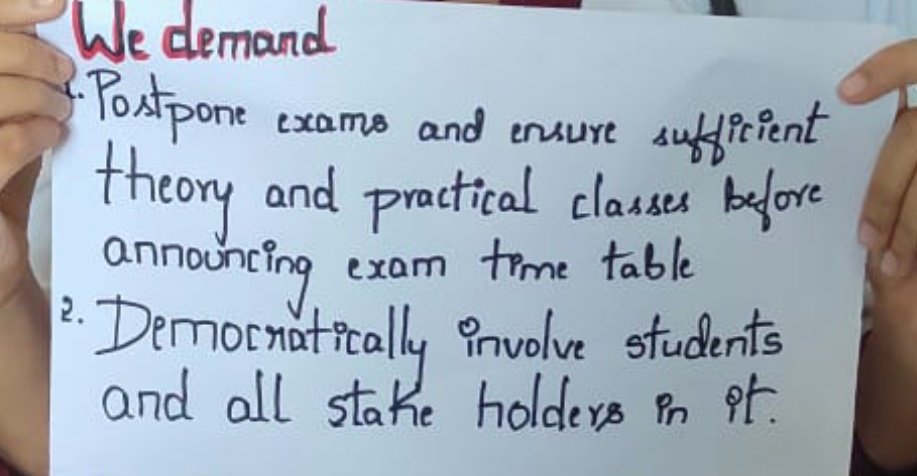 We demand
1. Postpone exams and ensure sufficient
theory and practical classes before
announcing exam time table
2. Democratically involve students
and all stake holders in it.